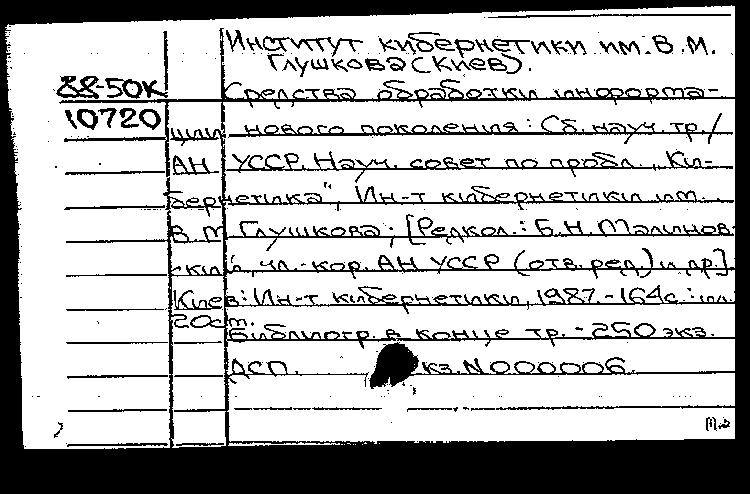 Институт кибернетики им. В. М.
Глушкова (Киев).
88-50К
Средства обработки информа-
10720
ции нового поколения: Сб. науч. тр./
АН УССР. Науч. совет по пробл. "Ки-
бернетика", Ин-т кибернетики им.
В. М. Глушкова; [Редкол.: Б. Н. Малинов-
ский, чл.-кор. АН УССР (отв. ред.) и др.]
Киев: Ин-т кибернетики, 1987.-164с.: ил.
20см.
Библиогр. в конце тр. - 250 экз.
ДСП. кз. N000006.